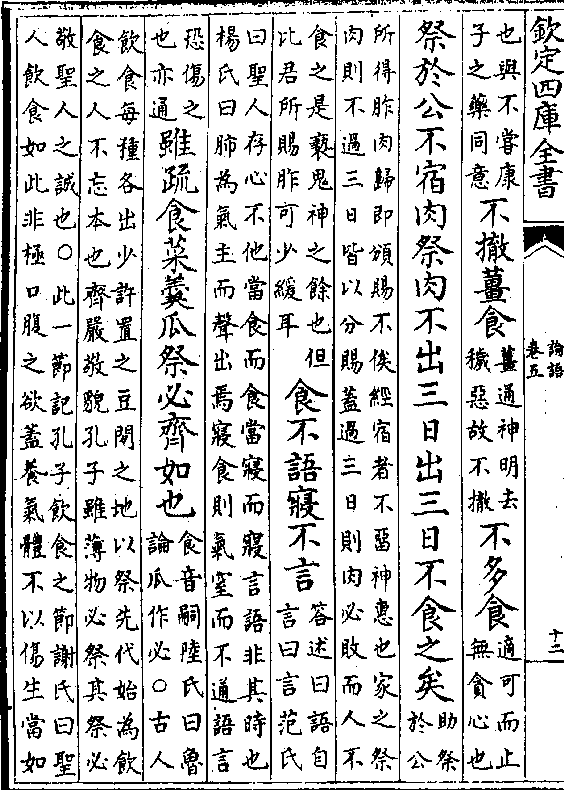 欽定四庫全書
論語
卷五
十二
也與不嘗康
子之藥同意
不撤薑食
薑通神明去
穢惡故不撤
不多食
適可而止
無貪心也
祭於公不宿肉祭肉不出三日出三日不食之矣
助祭
於公
所得胙肉歸即頒賜不俟經宿者不留神惠也家之祭
肉則不過三日皆以分賜蓋過三日則肉必敗而人不
食之是褻鬼神之餘也但
比君所賜胙可少緩耳
食不語寢不言
答述曰語自
言曰言范氏
曰聖人存心不他當食而食當寢而寢言語非其時也
楊氏曰肺為氣主而聲出焉寢食則氣窒而不通語言
恐傷之
也亦通
雖疏食菜羹瓜祭必齊如也
食音嗣陸氏曰魯
論瓜作必○古人
飲食每種各出少許置之豆閒之地以祭先代始為飲
食之人不忘本也齊嚴敬貌孔子雖薄物必祭其祭必
敬聖人之誠也○此一節記孔子飲食之節謝氏曰聖
人飲食如此非極口腹之欲蓋養氣體不以傷生當如